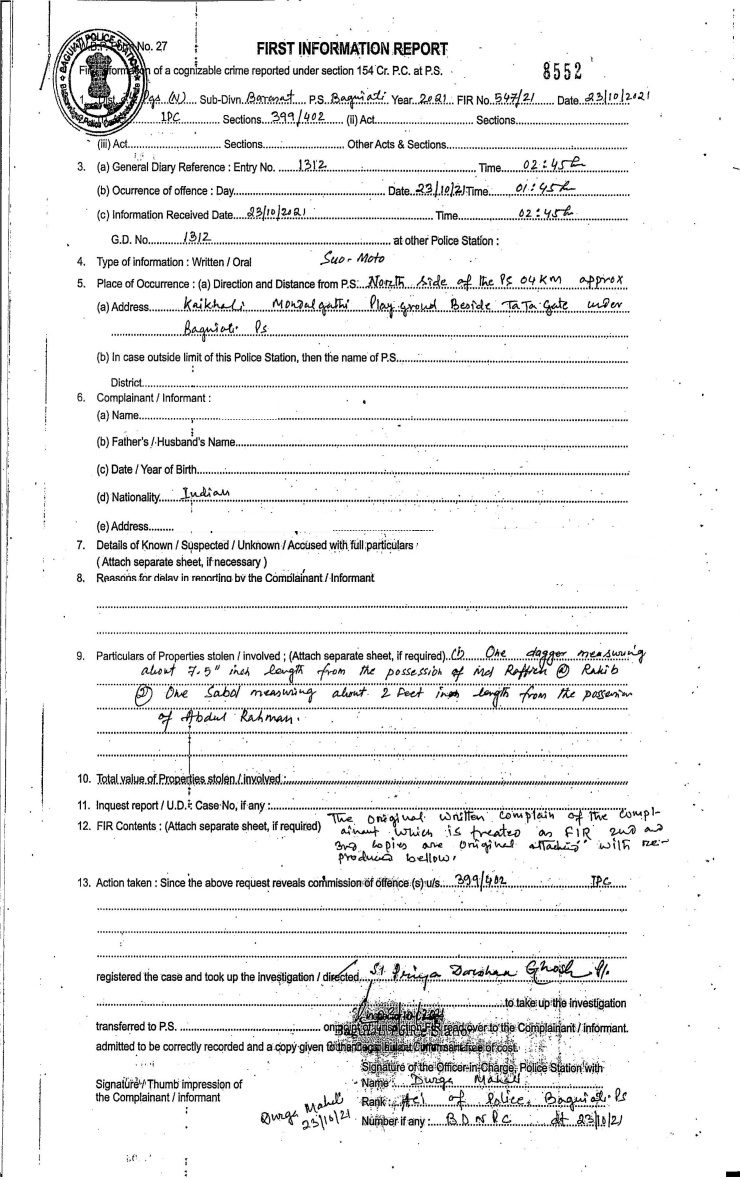 W.B.P. Form No. 27
FIRST INFORMATION REPORT
First Information of a cognizable crime reported under section 154 Cr. P.C. at P.S.
8552
1. Dist. Pgs (N) Sub-Divn. Barasat P.S. Baguiati Year 2021 FIR No. 547/21 Date 23/10/2021
IPC Sections 399/402 (ii) Act Sections
(iii) Act Sections Other Acts & Sections
3. (a) General Diary Reference : Entry No. 1312 Time 02:45 h
(b) Ocurrence of offence : Day Date 23/10/21 Time 01:45 h
(c) Information Received Date 23/10/2021 Time 02:45 h
G.D. No. 1312 at other Police Station :
4. Type of information : Written / Oral Suo-Moto
5. Place of Occurrence : (a) Direction and Distance from P.S. North side of the PS 04 KM approx
(a) Address Kaikhali Mondalgathi Play ground Beside TATA Gate under
Baguiati Ps
(b) In case outside limit of this Police Station, then the name of P.S.
District
6. Complainant / Informant :
(a) Name
(b) Father's / Husband's Name
(c) Date / Year of Birth
(d) Nationality Indian
(e) Address
7. Details of Known / Suspected / Unknown / Accused with full particulars
( Attach separate sheet, if necessary )
8. Reasons for delay in reporting by the Complainant / Informant
9. Particulars of Properties stolen / involved ; (Attach separate sheet, if required). (1) One dagger measuring
about 7.5" inch length from the possession of Md @ Rakib
(2) One Sabol measuring about 2 feet length from the possession
of Abdul Rahman.
10. Total value of Properties stolen / involved :
11. Inquest report / U.D. Case No, if any :
12. FIR Contents : (Attach separate sheet, if required) The original written complain of the compl-
ainant which is treated as FIR 2nd and
3rd copies are original attached with re-
produced bellow.
13. Action taken : Since the above request reveals commission of offence (s) u/s. 399/402 IPC
registered the case and took up the investigation / directed SI Priya Darshan Ghosh
to take up the investigation
transferred to P.S. on point of jurisdiction FIR read over to the Complainant / informant.
admitted to be correctly recorded and a copy given to the free of cost.
Signature of the Officer-in-Charge, Police Station with
Signature / Thumb impression of
the Complainant / informant
Name : Durga Mahali
Rank : of Police, Baguiati Ps
Number if any : B.D.N.P.C dt 23/10/21
Durga Mahali
23/10/21